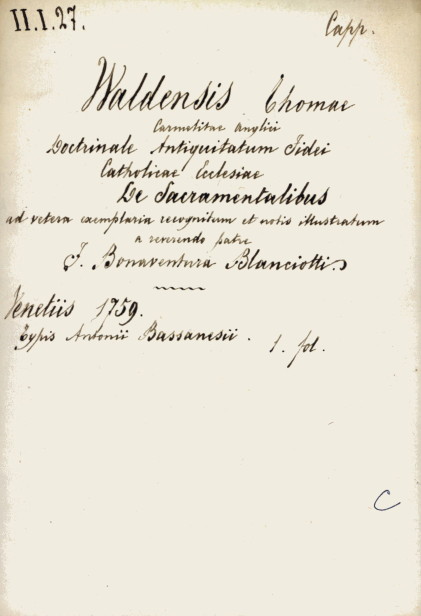 II.I.27.
Capp.
Waldensis Thomae
Carmelitae Anglici
Doctrinale Antiquitatum Fidei
Catholicae Ecclesiae
De Sacramentalibus
ad vetera exemplaria recognitum et notis illustratum
a reverendo patre
F. Bonaventura Blanciotti.
Venetiis 1759.
Typis Antonii Bassanesii.
1. fol.
C